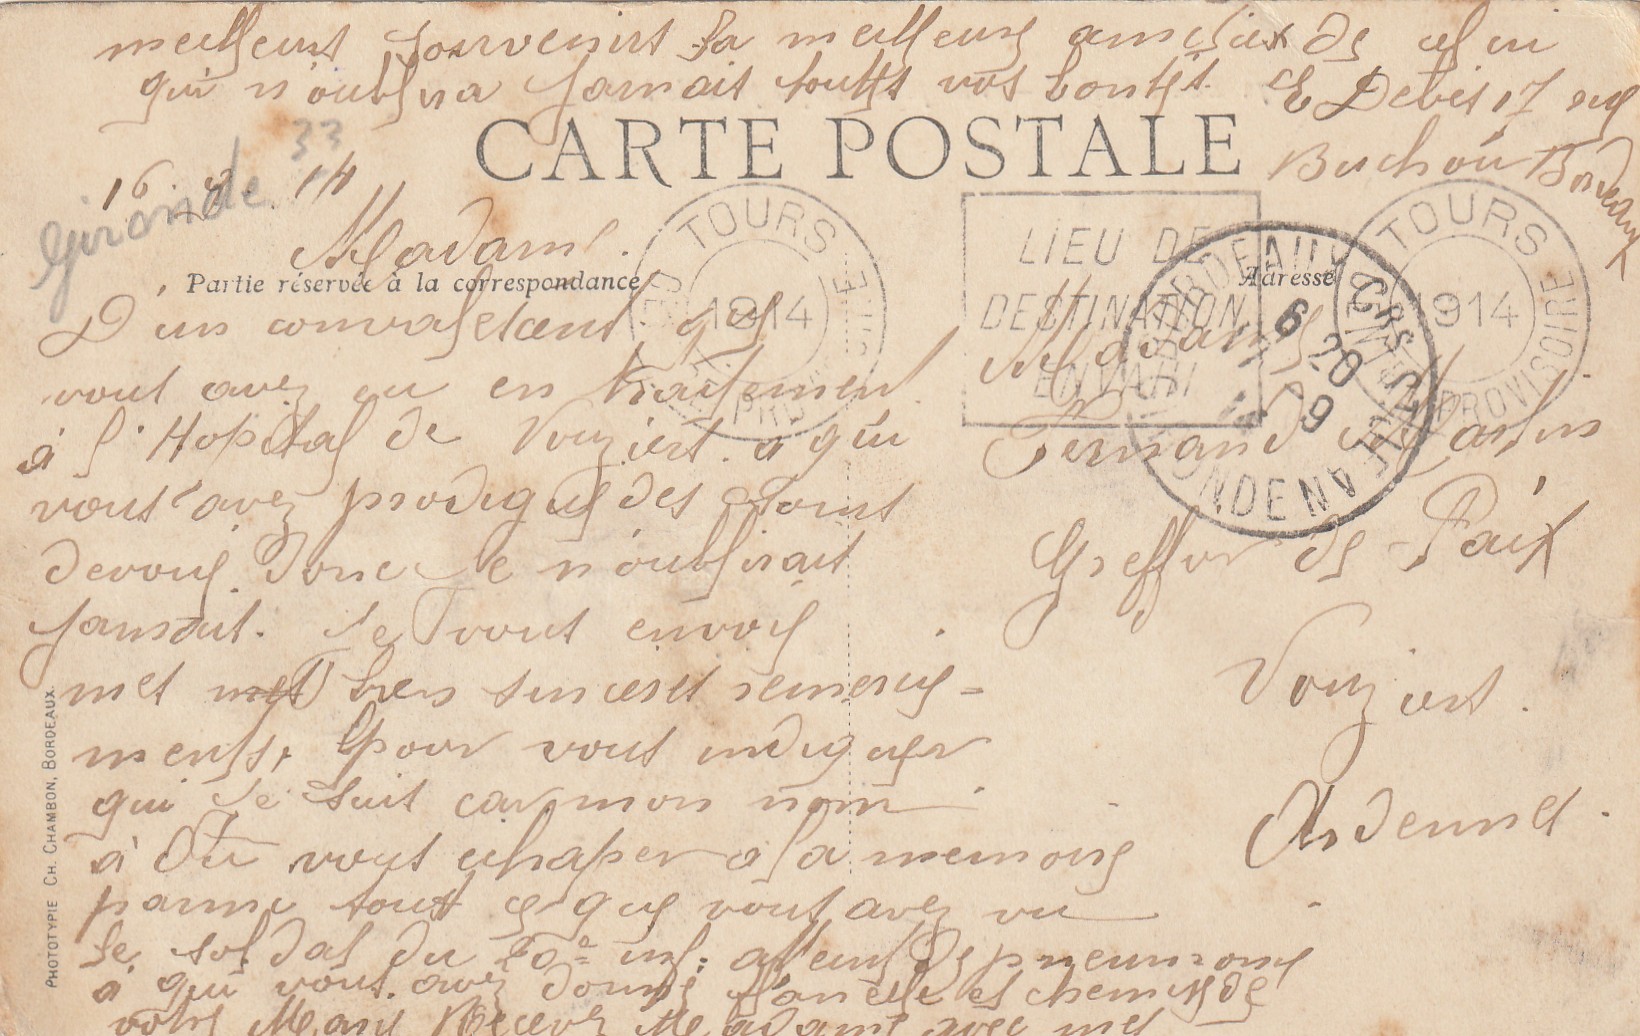 meilleurs souvenirs la meilleurs amitiés de celui
qui n'oublira jamais toutes vos bontés. E Debes 17 rue
Buchou Bordeaux
CARTE POSTALE
Gironde 33
16 14
Madame.
Partie réservée à la correspondance
Adresse
D'un convalescent que
vous avez eu en traitement
à l'Hopital de Vouziers. a qui
vous avez prodigué des soins
devoué. donc Je n'oublirait
Jamais. Je vous envoie
mes mes bien sinceres remercie=
ments, pour vous indiquer
qui Je suit car mon nom
à du vous echaper a la memoire
parmi tout ce que vous avez vu
le soldat du 20e inf: atteint de pneumonie
à qui vous avez donné flanelle et chemise de
votre Mari Recever Madame avec mes
Madame
Fernand
Greffier de Paix
Vouziers.
Ardennes.
TOURS
1914
PROVISOIRE
LIEU DE
DESTINATION
ENVAHI
TOURS
1914
PROVISOIRE
BORDEAUX
GIRONDE
6 20
9
PHOTOTYPIE CH. CHAMBON, BORDEAUX.